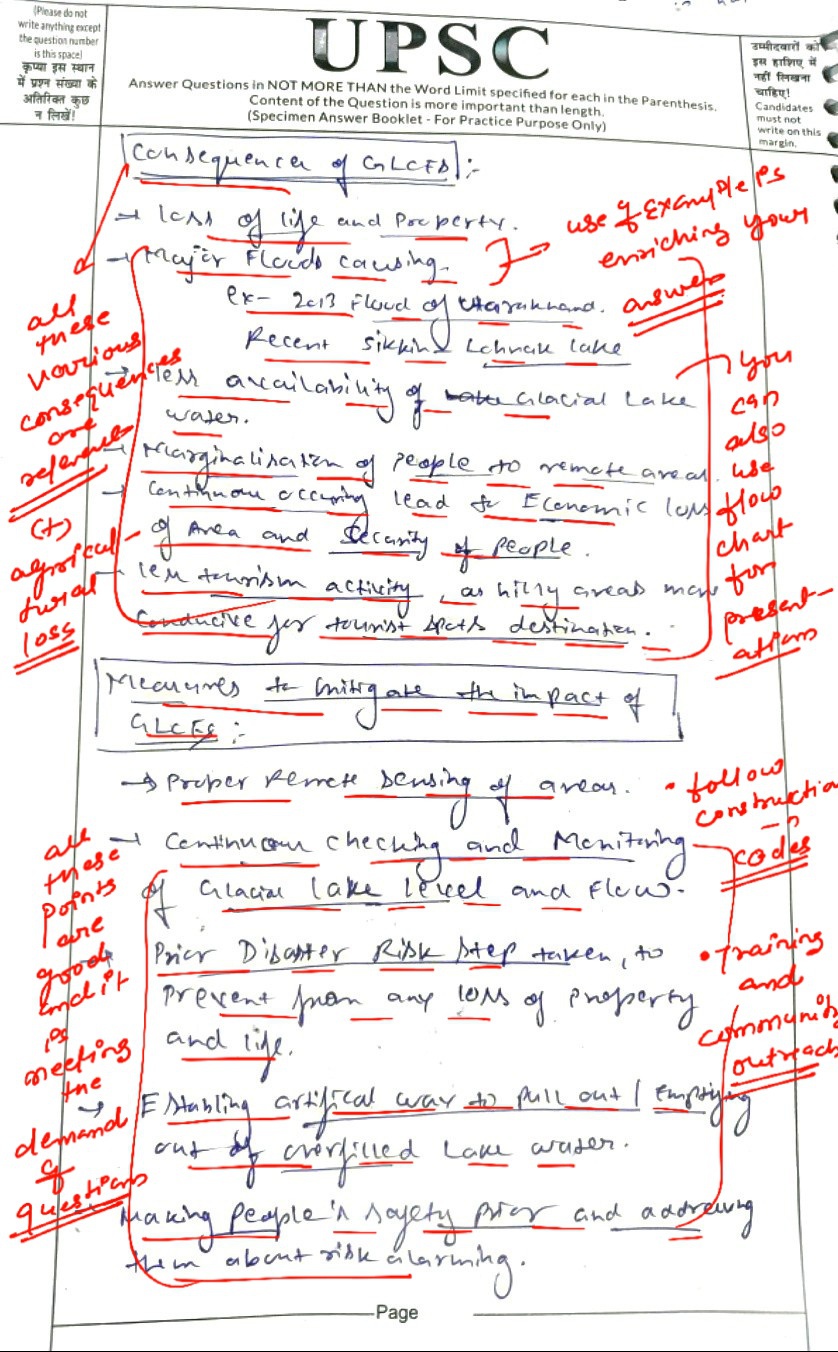 (Please do not
write anything except
the question number
is this space)
कृप्या इस स्थान
में प्रश्न संख्या के
अतिरिक्त कुछ
न लिखें!
UPSC
Answer Questions in NOT MORE THAN the Word Limit specified for each in the Parenthesis.
Content of the Question is more important than length.
(Specimen Answer Booklet - For Practice Purpose Only)
उम्मीदवारों को
इस हाशिए में
नहीं लिखना
चाहिए!
Candidates
must not
write on this
margin.
Consequences of GLCFS :-
→ Loss of life and Property.
→ Major Floods causing.
ex- 2013 Flood of Uttarakhand.
Recent Sikkim Lohnak lake
→ less availability of Glacial Lake
water.
→ Marginalisation of People to remote areas.
→ Continuous occuring lead to Economic loss
of Area and Security of People.
→ less tourism activity, as hilly areas more
Conducive for tourist spots destination.
use of Example is
enriching your
answer
all
these
various
consequences
are
(+)
agricul-
tural
loss
you
can
also
use
flow
chart
for
present-
ations
Measures to mitigate the impact of
GLCFs :-
→ Proper Remote Sensing of areas.
→ Continuous checking and Monitoring
of Glacial lake level and Flow.
Prior Disaster Risk Step taken, to
Prevent from any loss of Property
and life.
→ Establing artifical way to pull out / Emptying
out of overfilled Lake water.
Making People's safety Prior and addressing
them about risk alarming.
• follow
construction
codes
• Training
and
community
outreach
all
these
points
are
good
and it
is
meeting
the
demand
of
questions
Page